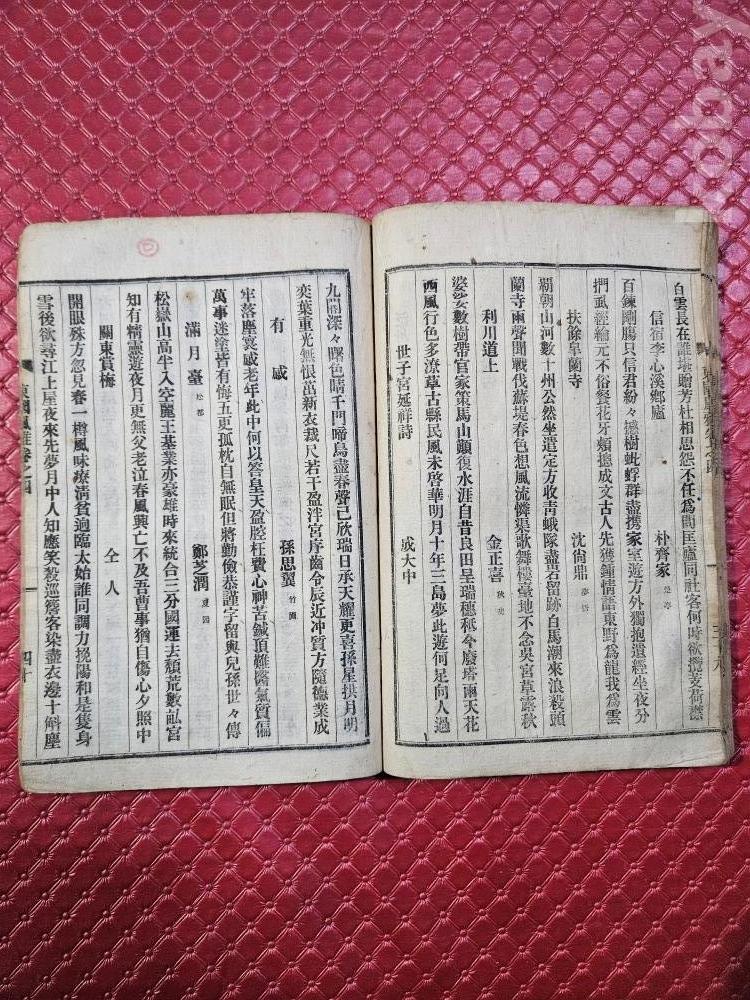 白雲長在誰堪贈芳杜相思怨不任爲問匡廬同社客何時欲攬芰荷襟
信宿李心溪鄉廬
朴齊家
百鍊剛腸只信君紛々撼樹蚍蜉群盡携家室遊方外獨抱遺經坐夜分
捫虱經綸元不俗餐花牙頰摠成文古人先獲鍾情語東野爲龍我爲雲
扶餘皐蘭寺
沈尙鼎
覇朝山河數十州公然坐遣定方收靑蛾隊盡岩留跡白馬潮來浪殺頭
蘭寺雨聲聞戰伐蘇堤春色想風流憐渠歌舞樓臺地不念吳宮草露秋
利川道上
金正喜
婆娑數樹帶官家策馬山顚復水涯自昔良田呈瑞穗秪今廢塔雨天花
西風行色多潦草古縣民風未啓華明月十年三島夢此遊何足向人過
世子宮延祥詩
成大中
九閽深々曙色晴千門啼鳥盡春聲已欣瑞日承天耀更喜孫星拱月明
奕葉重光無恨茁新衣裁尺若干盈泮宮序齒令辰近冲質方隨德業成
有感
孫思翼 竹圃
牢落塵寰感老年此中何以答皇天盈腔枉費心神苦鍼頂難醫氣質偏
萬事迷塗皆有悔五更孤枕自無眠但將勤儉恭謹字留與兒孫世々傳
滿月臺 松都
鄭芝潤 夏園
松嶽山高半入空麗王基業亦豪雄時來統合三分國運去頹荒數畒宮
知有精靈遊夜月更無父老泣春風興亡不及吾曹事猶自傷心夕照中
關東賞梅
仝人
開眼殊方忽見春一樽風味療淸貧逈臨太始誰同調力挽陽和是隻身
雪後欲尋江上屋夜來先夢月中人知應笑殺巡簷客染盡衣邊十斛塵
東國風雅卷之四
四十